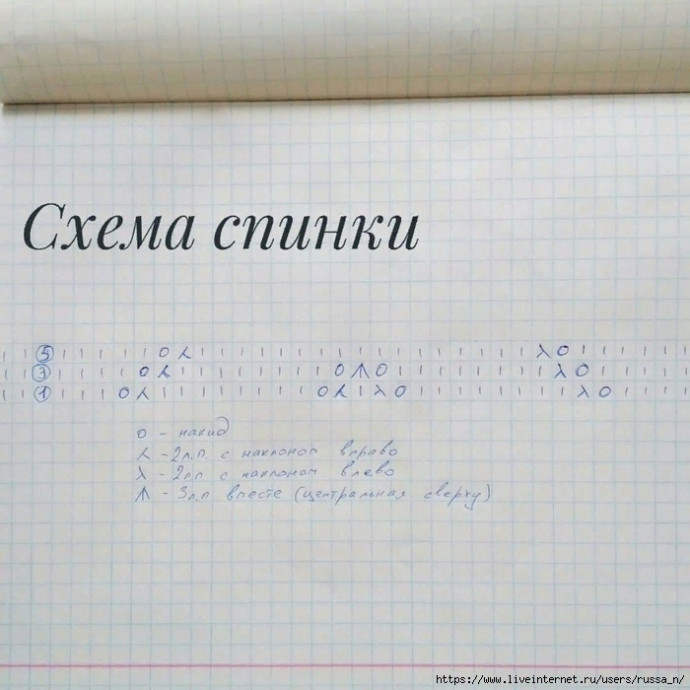 Схема спинки
5 | | | | | O ⅄ | | | | | | | | | | | | | | | | | λ O | | | | |
3 | | | | O ⅄ | | | | | | | | O Λ O | | | | | | | | λ O | | | | |
1 | | | O ⅄ | | | | | | | | O ⅄ | λ O | | | | | | | | λ O | | | |
O – накид
⅄ – 2л.п. с наклоном вправо
λ – 2л.п. с наклоном влево
Λ – 3л.п вместе (центральная сверху)
https://www.liveinternet.ru/users/russa_n/